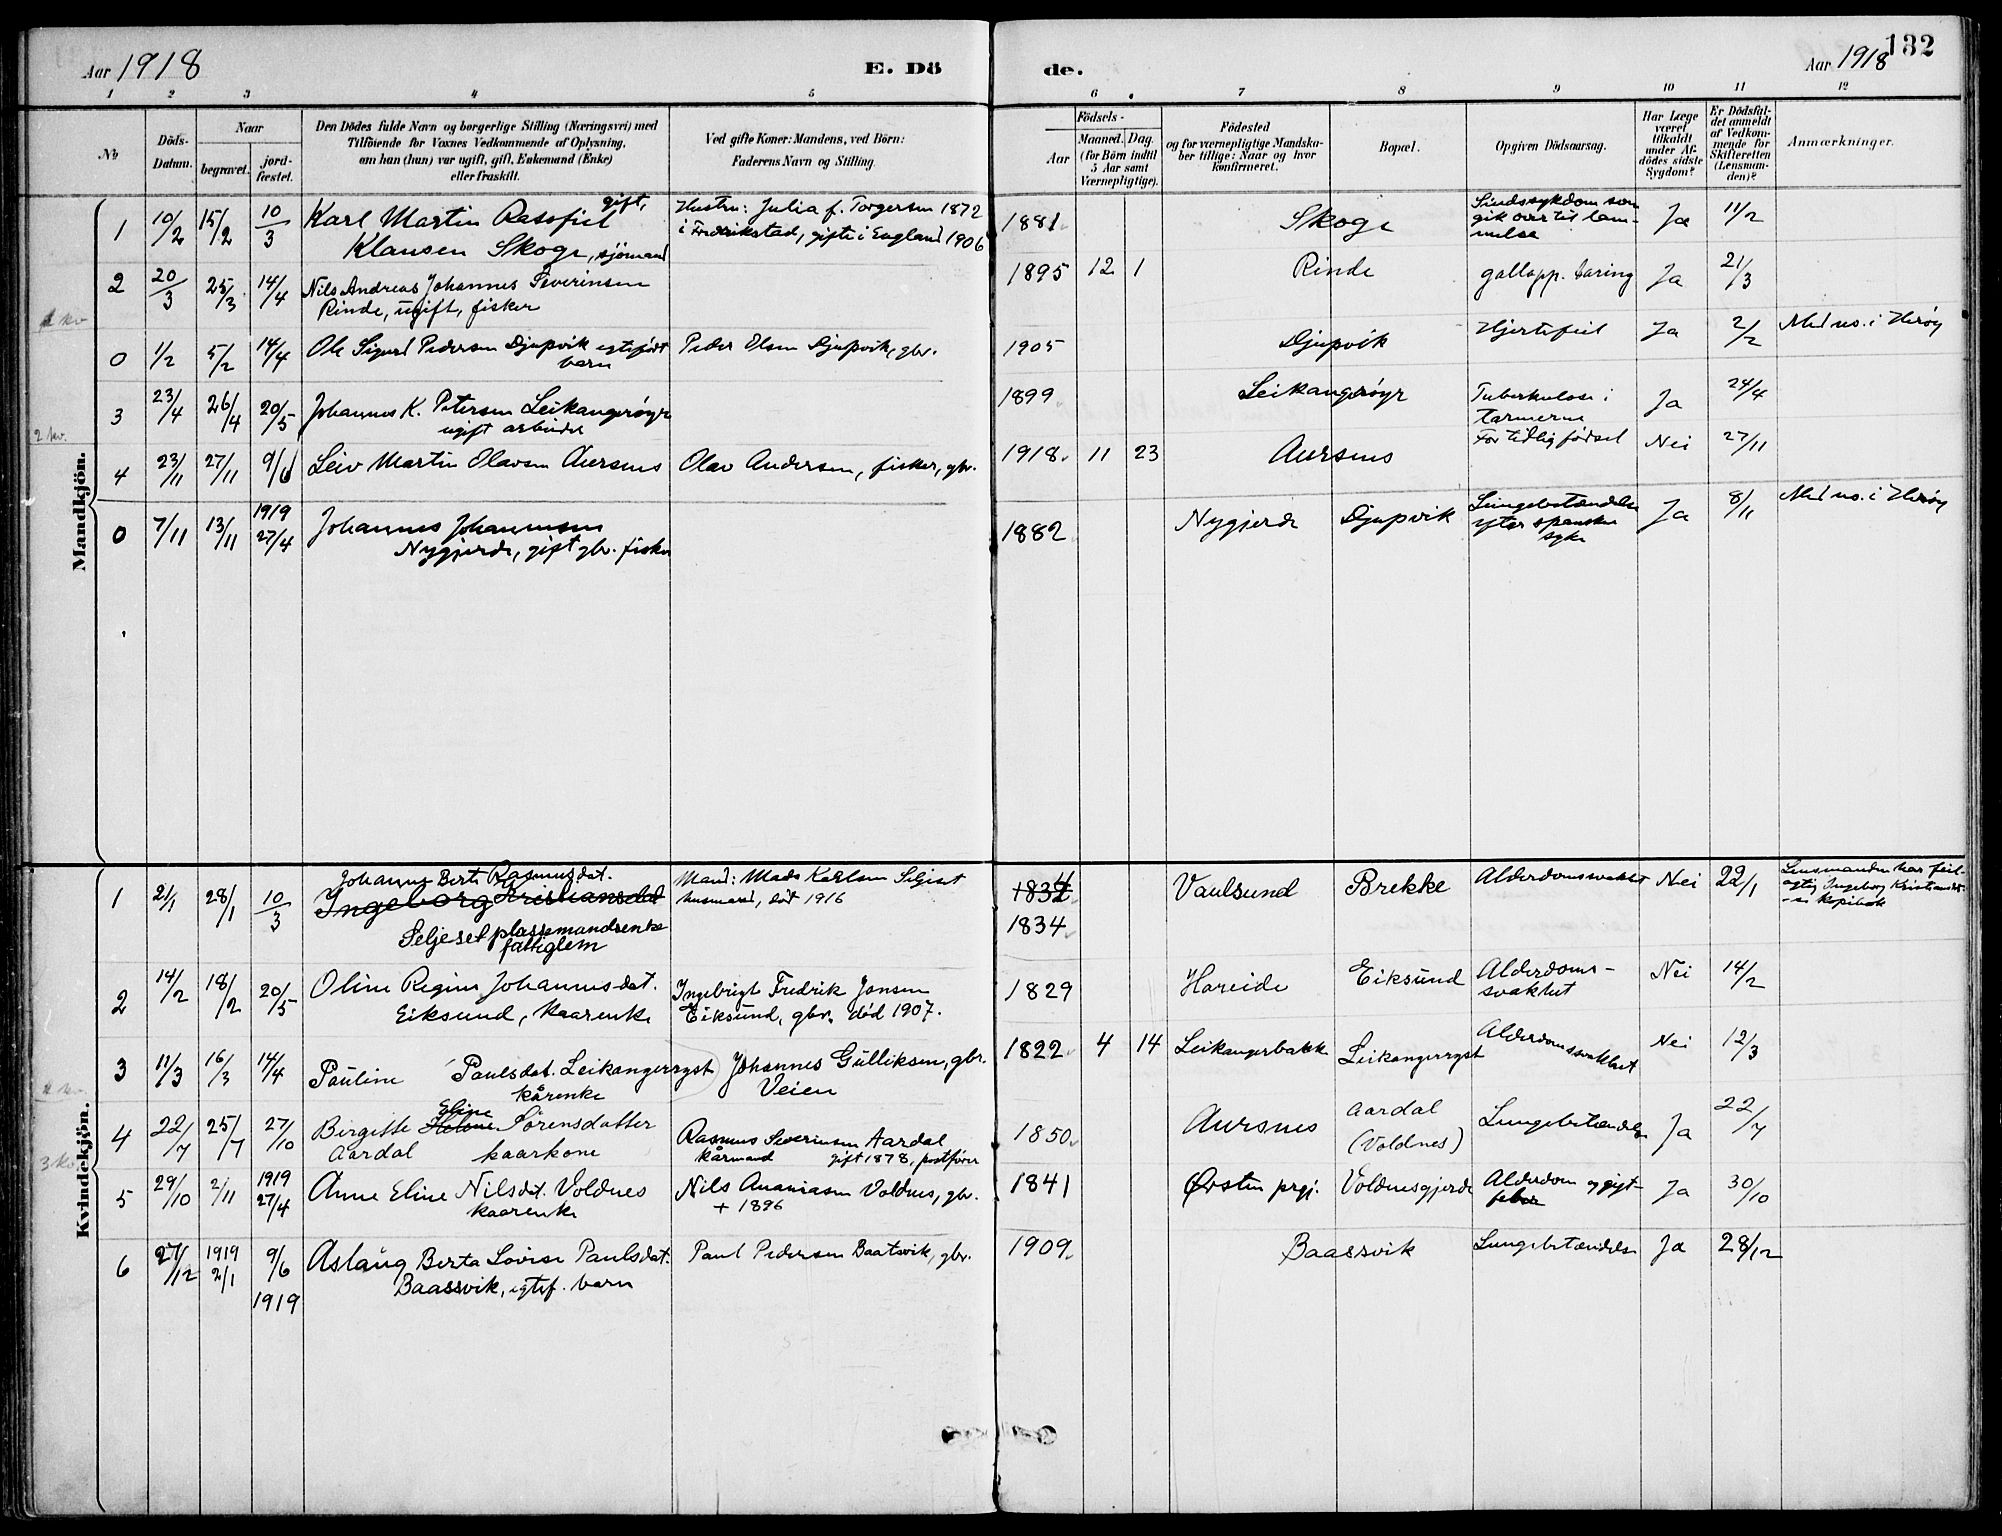 Aar 1918
E. Dö
de.
Aar 1918
132
1 2 3 4 5 6 7 8 9 10 11 12
No
Döds-
Datum.
Naar
begravet.
jord-
fæstet.
Den Dödes fulde Navn og borgerlige Stilling (Næringsvei) med
Tilföiende for Voxnes Vedkommende af Oplysning,
om han (hun) var ugift, gift, Enkemand (Enke)
eller fraskilt.
Ved gifte Koner: Mandens, ved Börn:
Faderens Navn og Stilling.
Födsels-
Aar
Maaned. Dag.
(for Börn indtil
5 Aar samt
Værnepligtige).
Födested
og for værnepligtige Mandska-
ber tillige: Naar og hvor
konfirmeret.
Bopæl.
Opgiven Dödsaarsag.
Har Læge
været
tilkaldt
under Af-
dödes sidste
Sygdom?
Er Dödsfal-
det anmeldt
af Vedkom-
mende for
Skifteretten
(Lensman-
den)?
Anmærkninger.
Mandkjön.
1 10/2 15/2 10/3 Karl Martin gift,
Klausen Skoge, sjömand
Hustru: Julia f. Torgersen 1872
i Fredrikstad, gifte i England 1906
1881 Skoge
Sindssykdom som
gik over til lam-
melse
Ja 11/2
2 20/3 25/3 14/4 Nils Andreas Johannes Severinsen
Rinde, ugift, fisker
1895 12 1 Rinde Ja 21/3
0 1/2 5/2 14/4 Ole Sigurd Pedersen Djupvik egtefödt
barn
Peder Olsen Djupvik, gbr.
1905 Djupvik Hjertefeil Ja 2/2 Med no. i Herøy
3 23/4 26/4 20/5 Johannes K. Petersen Leikangerøyr
ugift arbeider
1899 Leikangerøyr
Tuberkulose i
tarmerne
Ja 24/4
4 23/11 27/11 9/6 Leiv Martin Olavsen Aursnes Olav Andersen, fisker, gbr.
1918 11 23 Aursnes For tidlig födsel Nei 27/11
0 7/11 13/11 1919 27/4 Johannes Johannessen
Nygjerde, gift gbr. fisker
1882 Nygjerde Djupvik
Lungebetændelse
efter spanske
syke
Ja 8/11 Med no. i Herøy
Kvindekjön.
1 21/1 28/1 10/3 Johanne Berte Rasmusdat.
Ingeborg Kristiansdat
Seljeset plassemandsenke
fattiglem
Mand: Mads Karlsen Seljeset
husmand, död 1916
1834
1834
Vaulsund Brekke Alderdomssvakhet Nei 22/1
Lensmanden har feil-
agtig Ingeborg Kristiansdt
i kopibok
2 14/2 18/2 20/5 Oline Regine Johannesdat.
Eiksund, kaarenke
Ingebrigt Fredrik Jonsen
Eiksund, gbr. död 1907.
1829 Hareide Eiksund
Alderdoms-
svakhet
Nei 14/2
3 11/3 16/3 14/4 Pauline Paulsdat. Leikangerrygst
kårenke
Johannes Gulliksen, gbr.
Veien
1822 4 14 Leikangerbakk Leikangerrygst Alderdomssvakhet Nei 12/3
4 22/7 25/7 27/10 Eline
Birgitte Helene Sørensdatter
Aardal kaarkone
Rasmus Severinsen Aardal
kårmand gift 1878, postfører
1850 Aursnes Aardal
(Voldnes)
Lungebetændelse Ja 22/7
5 29/10 2/11 1919 27/4 Anne Eline Nilsdat. Voldnes
kaarenke
Nils Ananiasen Voldnes, gbr.
+ 1896
1841 Ørsten prgj. Voldnesgjerde
Alderdom og gigt-
feber
Ja 30/10
6 27/12 1919 2/1 9/6 1919 Aslaug Berta Lovise Paulsdat.
Baassvik, egtef. barn
Paul Pedersen Baatsvik, gbr.
1909 Baassvik Lungebetændelse Ja 28/12